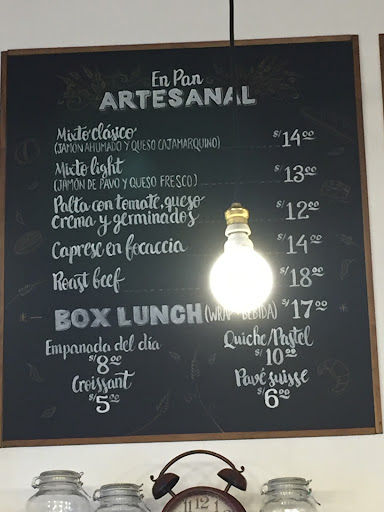 En Pan
ARTESANAL
Mixto clásico
(JAMÓN AHUMADO Y QUESO CAJAMARQUINO) S/14.00
Mixto light
(JAMÓN DE PAVO Y QUESO FRESCO) S/13.00
Palta con tomate, queso
crema y germinados S/12.00
Caprese en focaccia S/14.00
Roast beef S/18.00
BOX LUNCH (WRAP BEBIDA) S/17.00
Empanada del día Quiche/Pastel
S/8.00 S/10.00
Croissant Pavé suisse
S/5.00 S/6.00
11 12 1